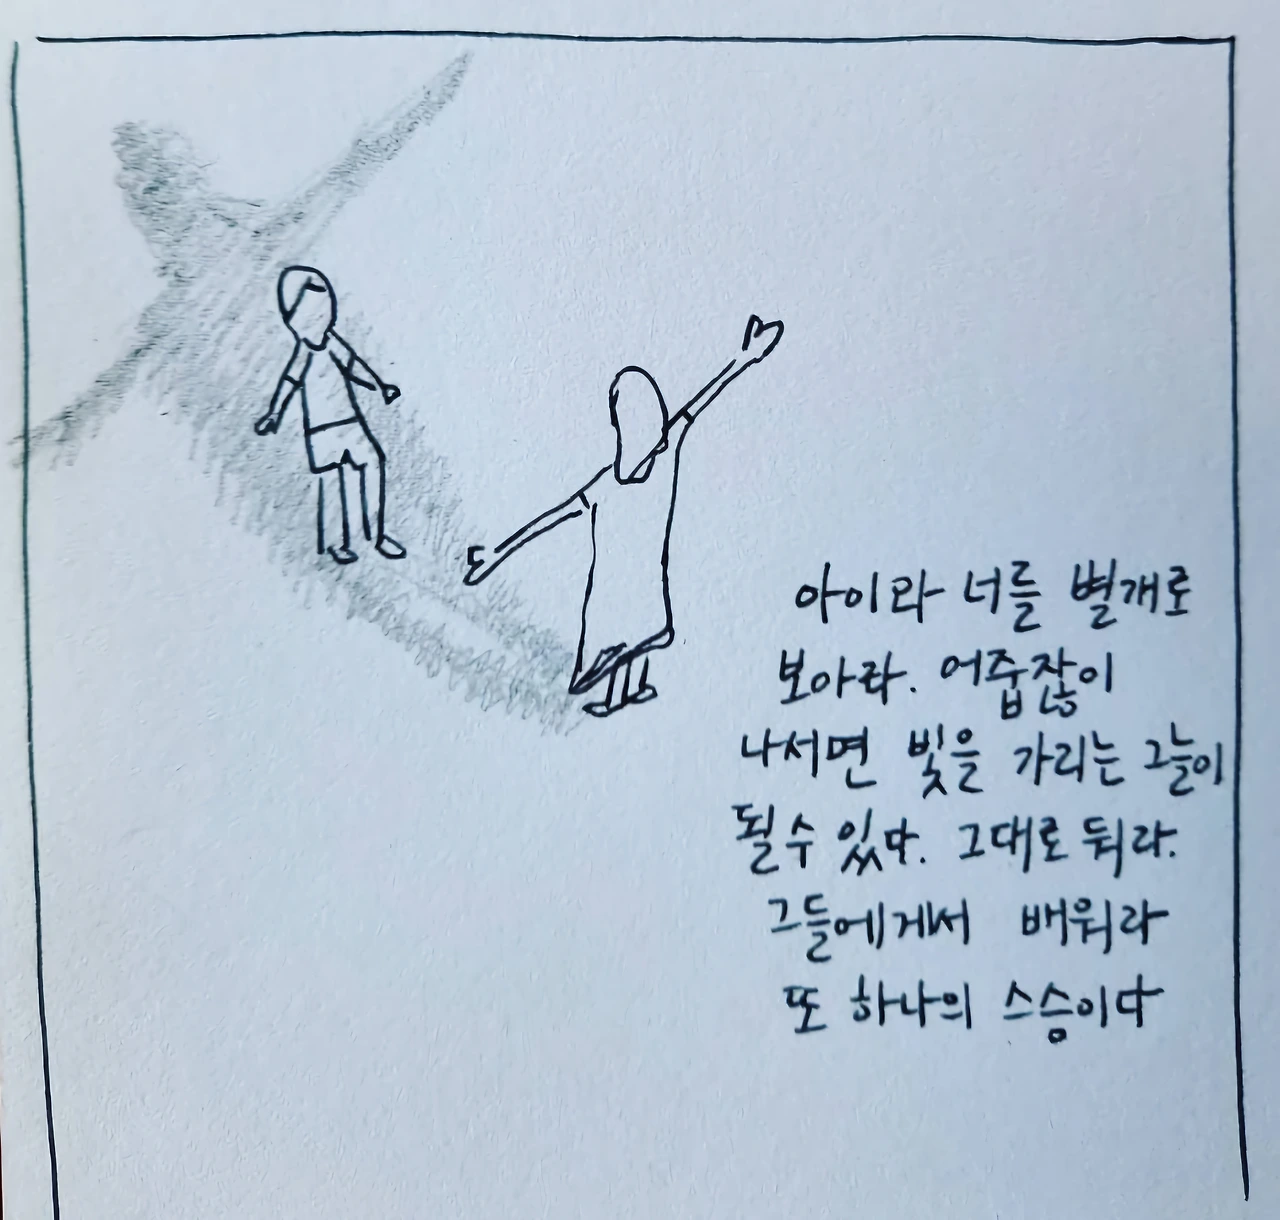 아이라 너를 별개로
보아라. 어줍잖이
나서면 빛을 가리는 그늘이
될수 있다. 그대로 둬라.
그들에게서 배워라
또 하나의 스승이다